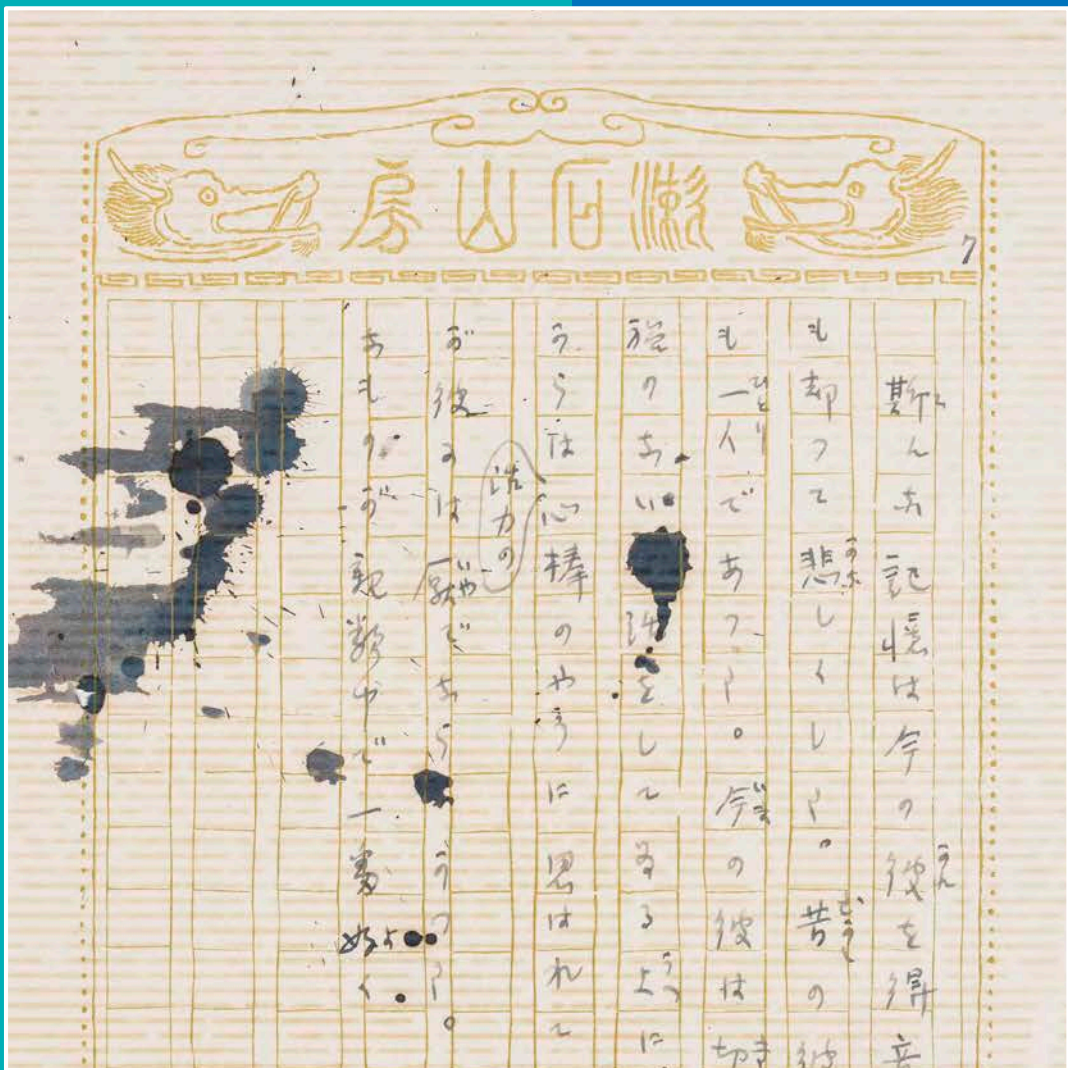 漱石山房
7
斯んな記憶は今の彼を得意
も却つて悲しくした。昔の彼
も一人であつた。今の彼は切
のない をしてゐる上に
からは心棒のやうに思はれて
力の
が彼には厭でならなかつた。
なものが親類中で一番好く